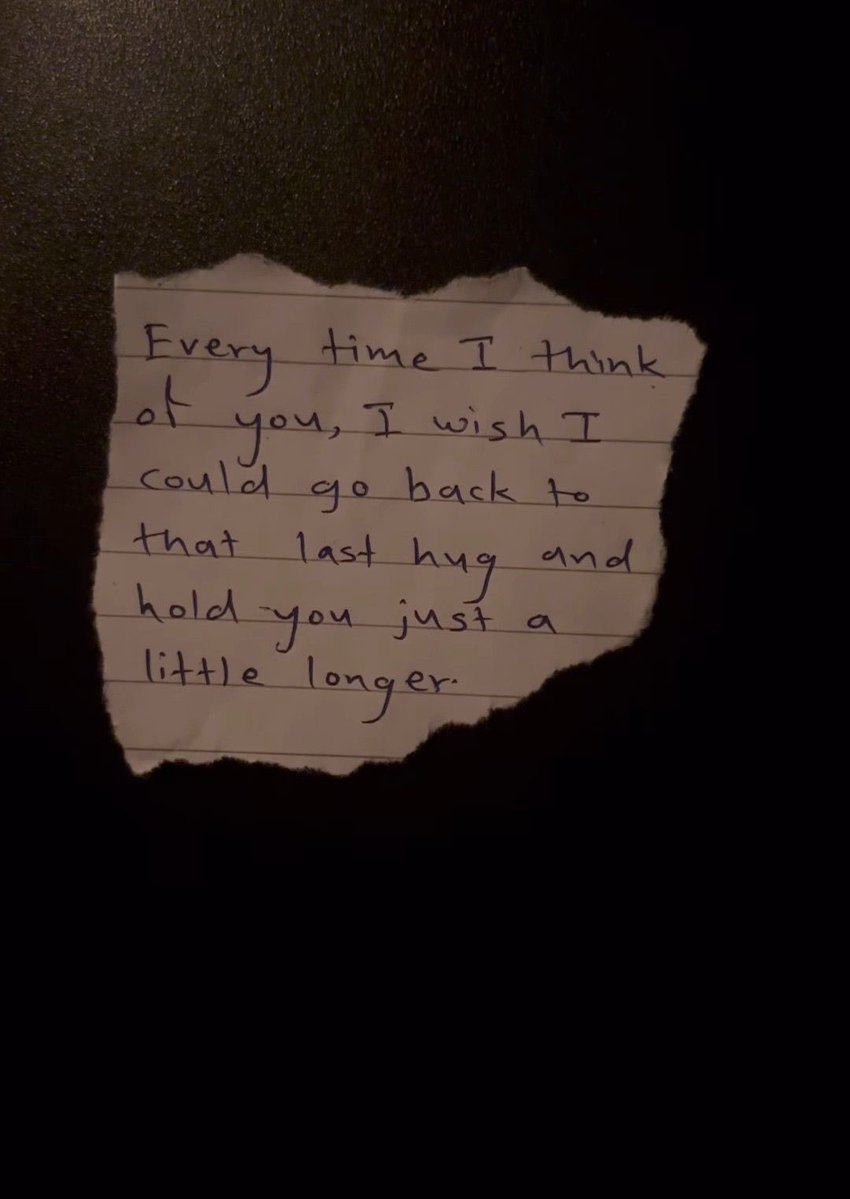 Every time I think
of you, I wish I
could go back to
that last hug and
hold you just a
little longer.